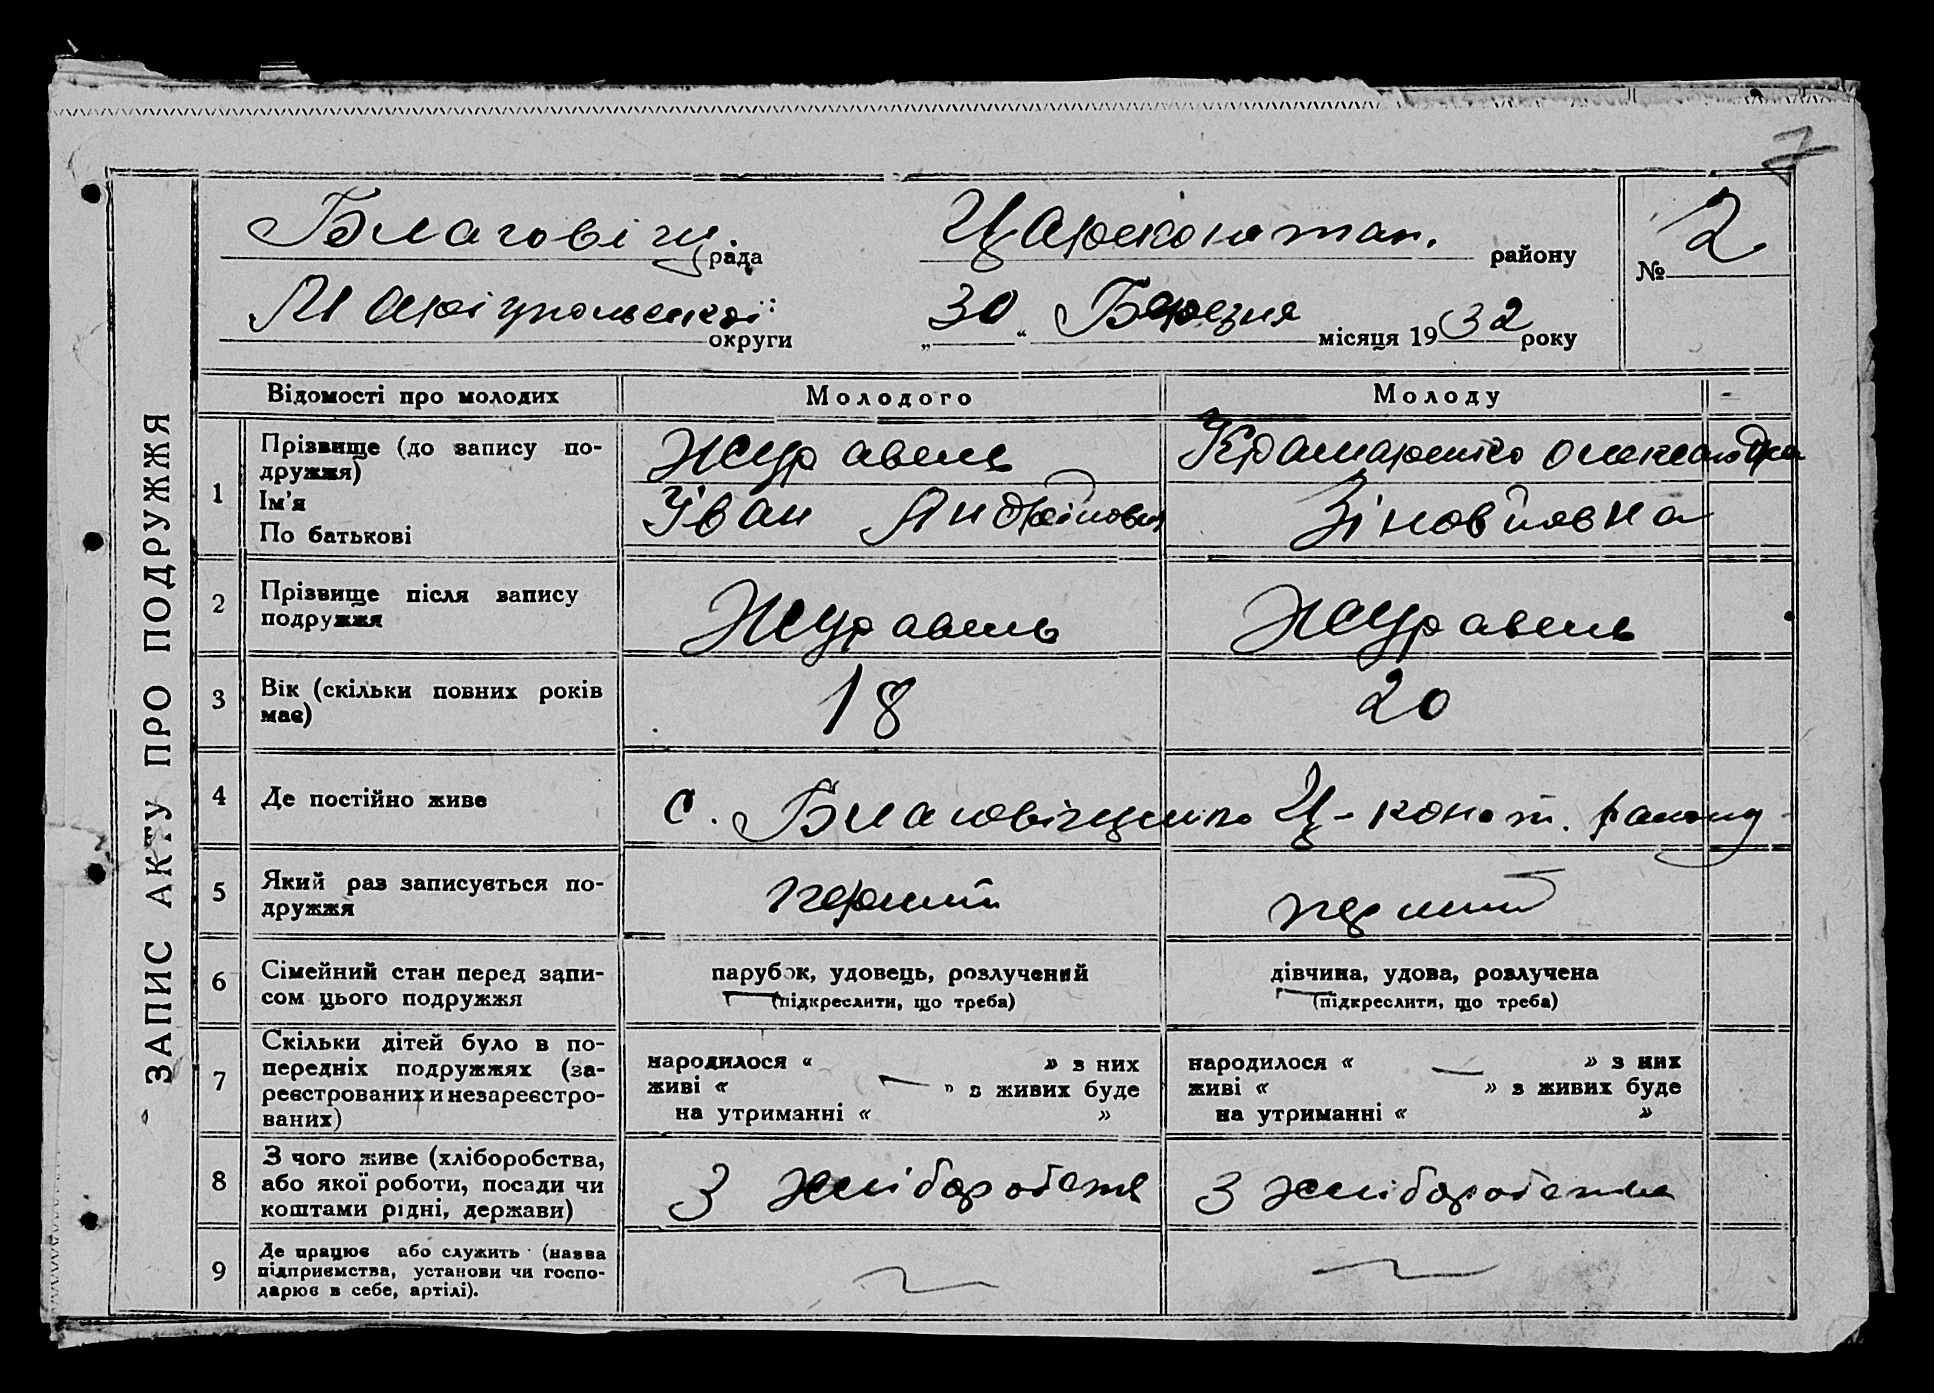 7
Благовіщ. рада Царекостан. району № 2
Маріупольської округи „30“ Березня місяця 1932 року
ЗАПИС АКТУ ПРО ПОДРУЖЖЯ
Відомості про молодих Молодого Молоду
1 Прізвище (до запису по-
дружжя)
Ім'я
По батькові
Журавель
Іван Андрійович
Крамаренко Олександра
Зінов'ївна
2 Прізвище після запису
подружжя
Журавель Журавель
3 Вік (скільки повних років
має)
18 20
4 Де постійно живе с. Благовіщенка Ц-конст. району
5 Який раз записується по-
дружжя
перший перший
6 Сімейний стан перед запи-
сом цього подружжя
парубок, удовець, розлучений
(підкреслити, що треба)
дівчина, удова, розлучена
(підкреслити, що треба)
7 Скільки дітей було в по-
передніх подружжях (за-
реєстрованих и незареєстро-
ваних)
народилося « » з них
живі « — » з живих буде
на утриманні « »
народилося « — » з них
живі « » з живих буде
на утриманні « »
8 З чого живе (хліборобства,
або якої роботи, посади чи
коштами рідні, держави)
З хліборобств З хліборобства
9 Де працює або служить (назва
підприємства, установи чи госпо-
дарює в себе, артілі).